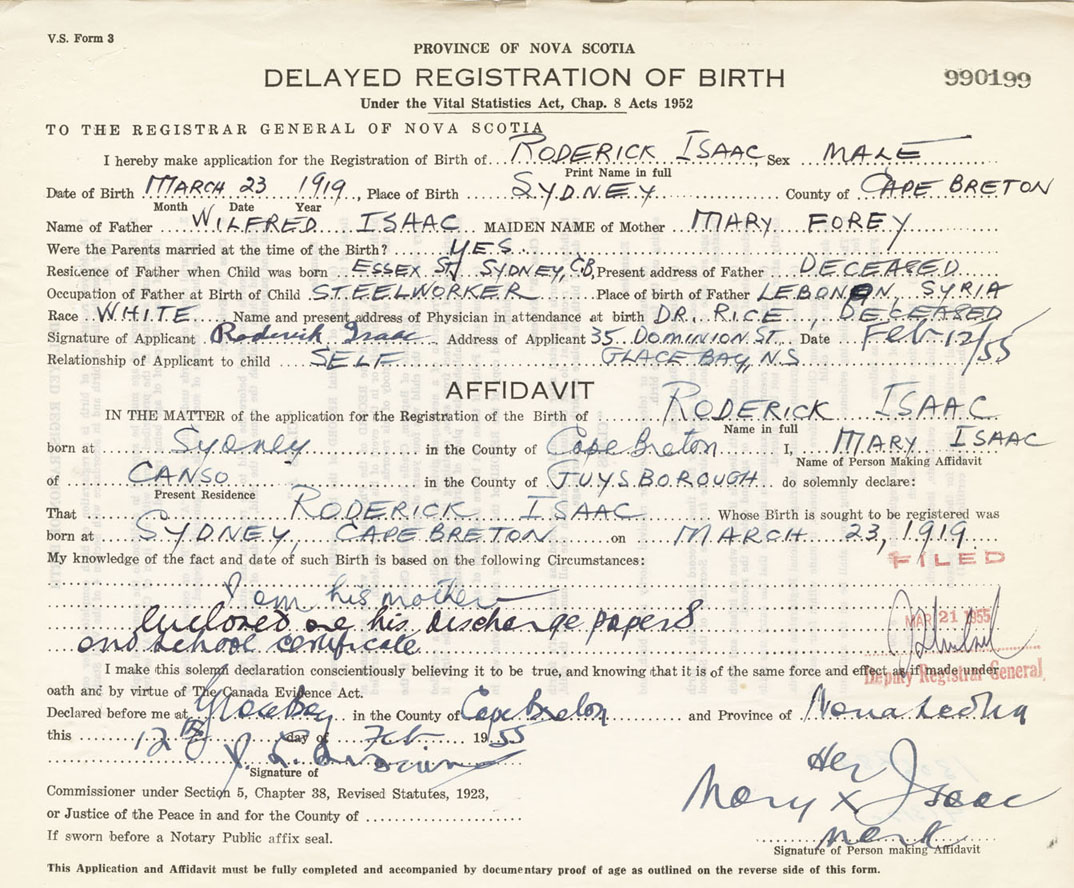 V.S. Form 3
PROVINCE OF NOVA SCOTIA
DELAYED REGISTRATION OF BIRTH
990199
Under the Vital Statistics Act, Chap. 8 Acts 1952
TO THE REGISTRAR GENERAL OF NOVA SCOTIA
I hereby make application for the Registration of Birth of RODERICK ISAAC, Sex MALE
Print Name in full
Date of Birth MARCH 23 1919, Place of Birth SYDNEY County of CAPE BRETON
Month Date Year
Name of Father WILFRED ISAAC MAIDEN NAME of Mother MARY FOREY
Were the Parents married at the time of the Birth? YES
Residence of Father when Child was born ESSEX ST, SYDNEY, C.B, Present address of Father DECEASED
Occupation of Father at Birth of Child STEELWORKER Place of birth of Father LEBONEN, SYRIA
Race WHITE Name and present address of Physician in attendance at birth DR. RICE, DECEASED
Signature of Applicant Roderick Isaac Address of Applicant 35 DOMINION ST. Date Feb 12/55
Relationship of Applicant to child SELF GLACE BAY, N.S
AFFIDAVIT
IN THE MATTER of the application for the Registration of the Birth of RODERICK ISAAC
Name in full
born at Sydney in the County of Cape Breton I, MARY ISAAC
Name of Person Making Affidavit
of CANSO in the County of GUYSBOROUGH do solemnly declare:
Present Residence
That RODERICK ISAAC Whose Birth is sought to be registered was
born at SYDNEY, CAPE BRETON on MARCH 23, 1919
My knowledge of the fact and date of such Birth is based on the following Circumstances:
FILED
I am his mother
Enclosed are his discharge papers
and school certificate
MAR 21 1955
Deputy Registrar General
I make this solemn declaration conscientiously believing it to be true, and knowing that it is of the same force and effect as if made under
oath and by virtue of The Canada Evidence Act.
Declared before me at Glace Bay in the County of Cape Breton and Province of Nova Scotia
this 12th day of Feb 1955
Signature of
Commissioner under Section 5, Chapter 38, Revised Statutes, 1923,
or Justice of the Peace in and for the County of
If sworn before a Notary Public affix seal.
Her
Mary X Isaac
mark
Signature of Person making Affidavit
This Application and Affidavit must be fully completed and accompanied by documentary proof of age as outlined on the reverse side of this form.